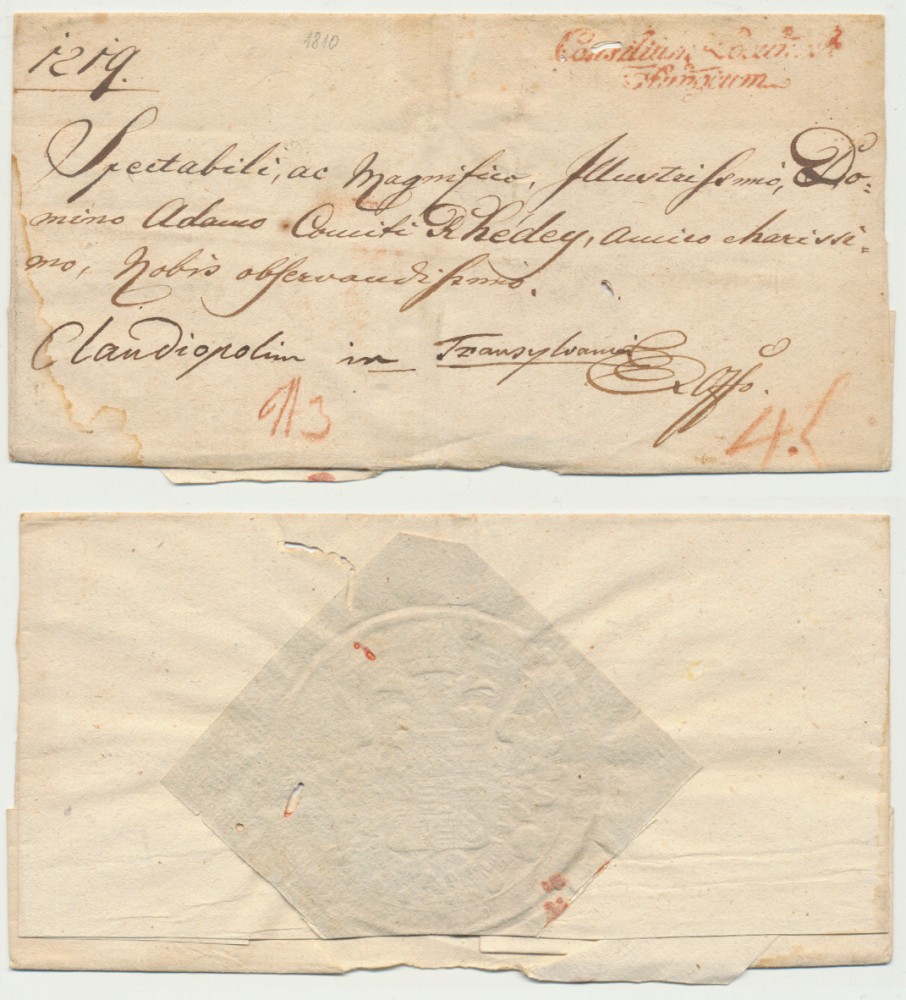 1219.
1810
Consilium Locumt
Spectabili, ac Magnifico, Illustrissimo, Do=
mino Adamo Comiti Rhedey, amico charissi=
mo, Nobis observandissimo.
Claudiopolim in Transylvania
Ex Offo.
3
4.